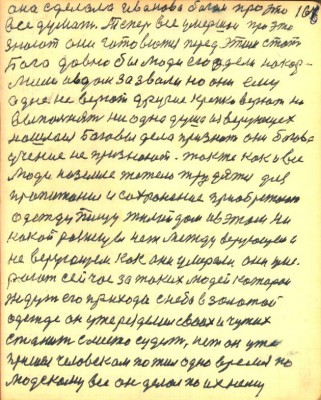 она сделала Иванова бога про это 16
все думали. Теперь все умерли про это
знают они готовится пред этим стат
Бога довно бы люди его одели накор-
мили авдом зазвали но они ему
одне не верют другие крепко верют но
выполнить ни одна душа из верующих
нашлась Боговы дела признают они богово
учение не признают. также как и все
люди на земле тоже трудятся для
пропитания и сохранение приобретают
одежду пищу жилой дом и в этом ни
какой розницы нет между верующим и
не верующем как они умерали они уми-
рают сейчас за таких людей которые
ждут его прихода с неба в золотой
одежде он уже судьям своих и чужих
станит с места судить, нет он уже
пришел человеком пожил одно время по
людскому все он делал по ихнему